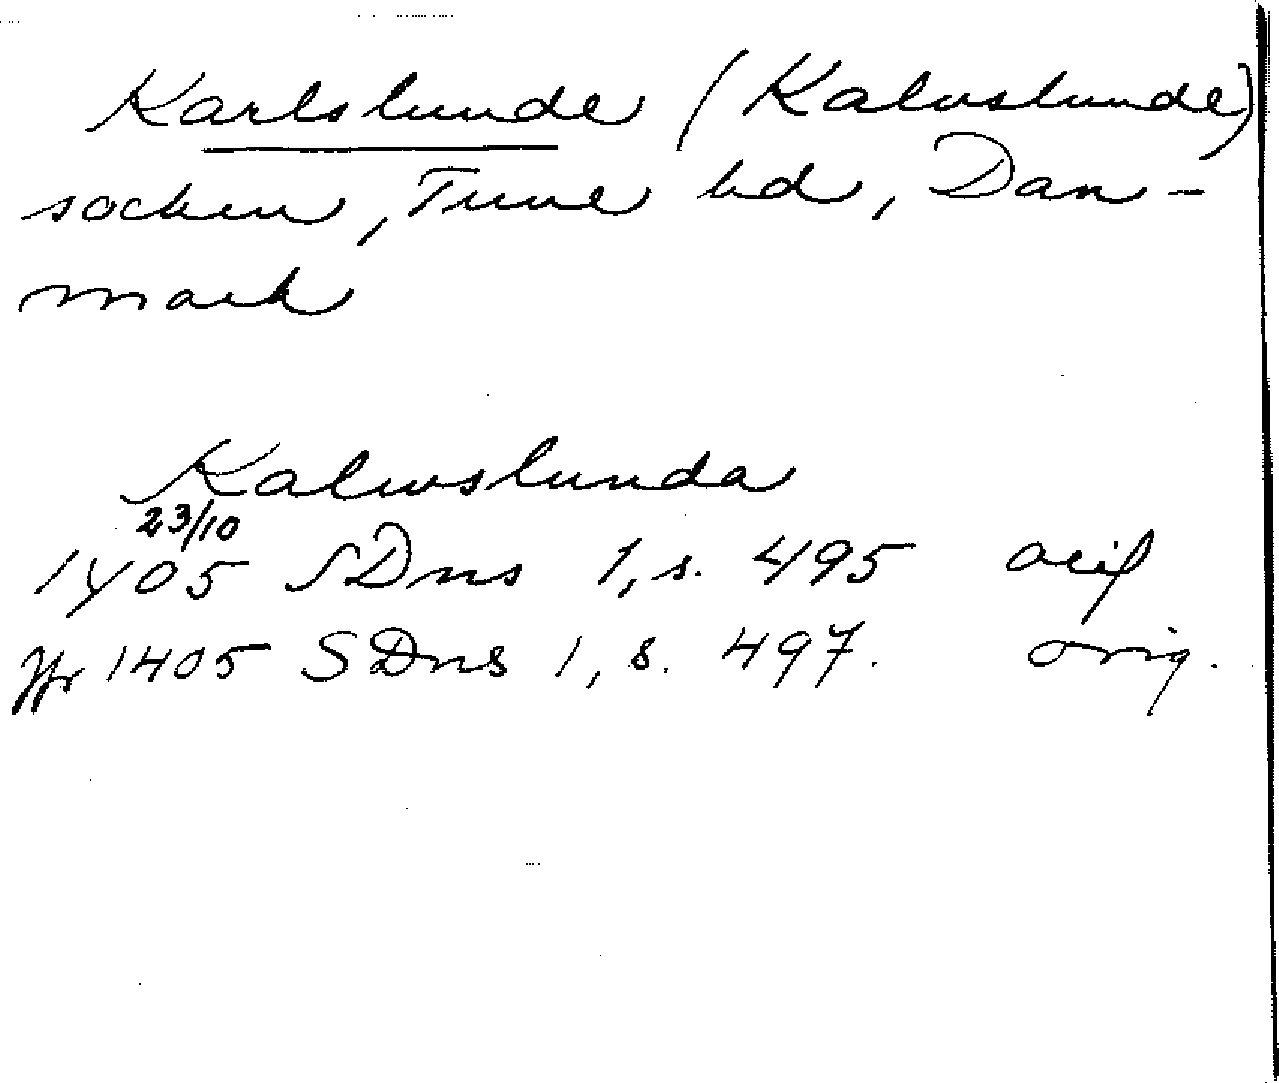 Karlslunde (Kalvslunde)
socken, Tune hd, Dan-
mark
Kalwslunda
23/10
1405 SDns 1, s. 495
Jfr 1405 SDns 1, s. 497. orig.